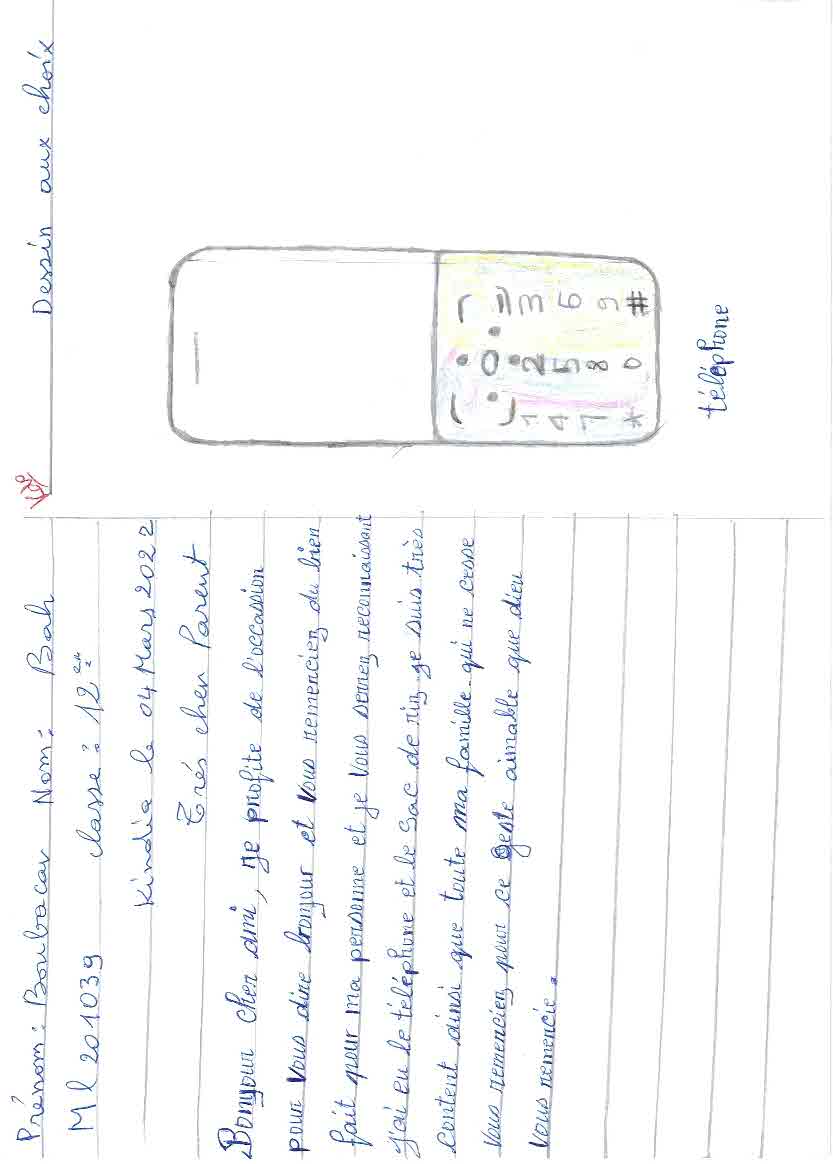 Prénom: Boubacar Nom: Bah
Ml 201039 classe: 12
Kindia le 04 Mars 2022
Trés cher Parent
Bonjour cher ami, je profite de l'occassion
pour vous dire bonjour et vous remercier du bien
fait pour ma personne et je vous serrez reconnaissant
j'ai eu le téléphone et le sac de riz, je suis très
content ainsi que toute ma famille qui ne cesse
vous remercier, pour ce geste aimable que dieu
vous remercie.
Dessin aux choix
1 2 3
4 5 6
7 8 9
* 0 #
téléphone